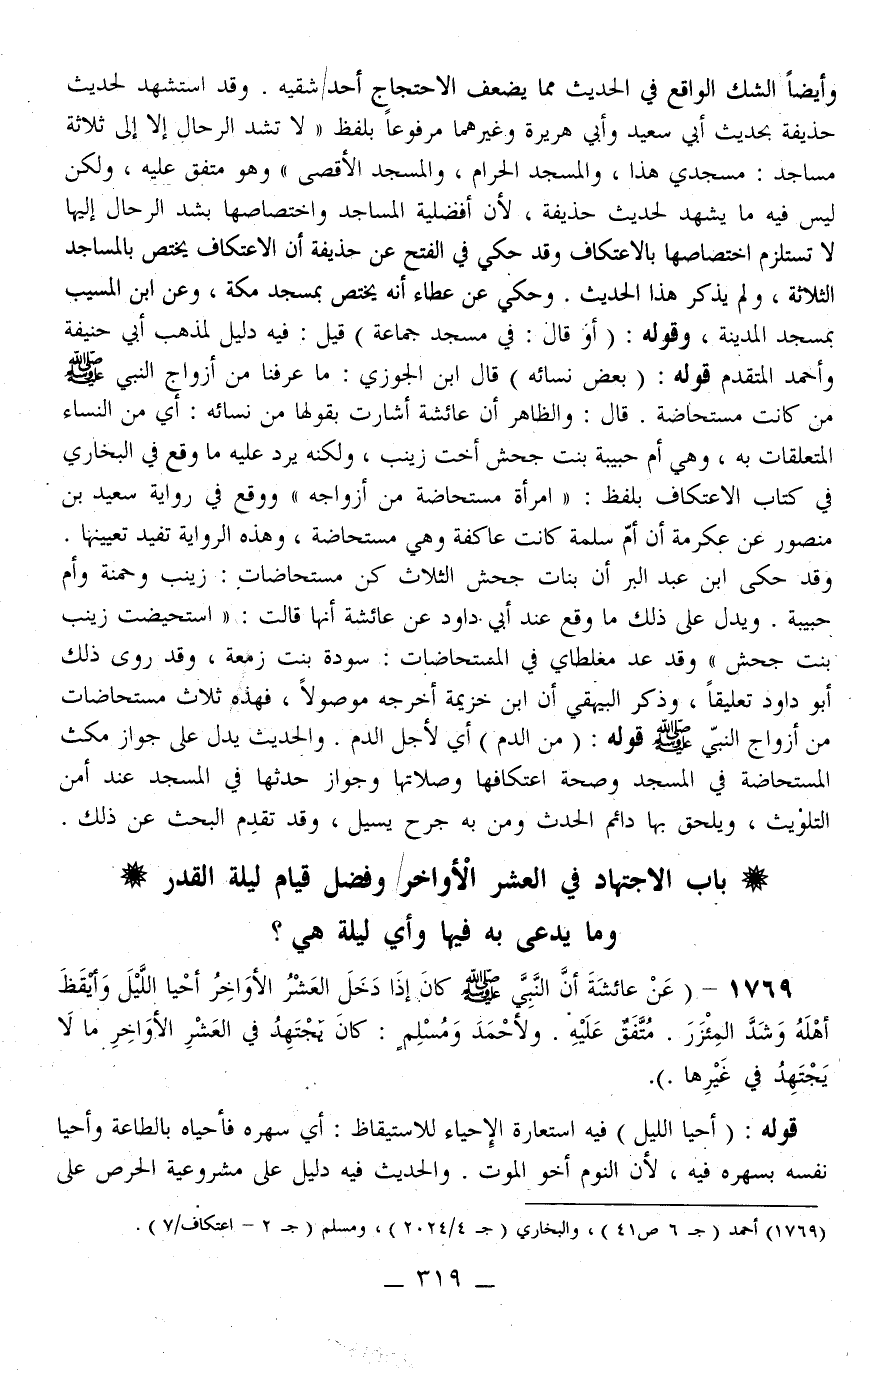 وأيضاً الشك الواقع في الحديث مما يضعف الاحتجاج أحد/شقيه . وقد استشهد لحديث
حذيفة بحديث أبي سعيد وأبي هريرة وغيرهما مرفوعاً بلفظ « لا تشد الرحال إلا إلى ثلاثة
مساجد : مسجدي هذا ، والمسجد الحرام ، والمسجد الأقصى » وهو متفق عليه ، ولكن
ليس فيه ما يشهد لحديث حذيفة ، لأن أفضلية المساجد واختصاصها بشد الرحال إليها
لا تستلزم اختصاصها بالاعتكاف وقد حكي في الفتح عن حذيفة أن الاعتكاف يختص بالمساجد
الثلاثة ، ولم يذكر هذا الحديث . وحكي عن عطاء أنه يختص بمسجد مكة ، وعن ابن المسيب
بمسجد المدينة ، وقوله : ( أو قال : في مسجد جماعة ) قيل : فيه دليل لمذهب أبي حنيفة
وأحمد المتقدم قوله : ( بعض نسائه ) قال ابن الجوزي : ما عرفنا من أزواج النبي ﷺ
من كانت مستحاضة . قال : والظاهر أن عائشة أشارت بقولها من نسائه : أي من النساء
المتعلقات به ، وهي أم حبيبة بنت جحش أخت زينب ، ولكنه يرد عليه ما وقع في البخاري
في كتاب الاعتكاف بلفظ : « امرأة مستحاضة من أزواجه » ووقع في رواية سعيد بن
منصور عن عكرمة أن أمّ سلمة كانت عاكفة وهي مستحاضة ، وهذه الرواية تفيد تعيينها .
وقد حكى ابن عبد البر أن بنات جحش الثلاث كن مستحاضات : زينب وحمنة وأم
حبيبة . ويدل على ذلك ما وقع عند أبي داود عن عائشة أنها قالت : « استحيضت زينب
بنت جحش » وقد عد مغلطاي في المستحاضات : سودة بنت زمعة ، وقد روى ذلك
أبو داود تعليقاً ، وذكر البيهقي أن ابن خزيمة أخرجه موصولاً ، فهذه ثلاث مستحاضات
من أزواج النبيّ ﷺ قوله : ( من الدم ) أي لأجل الدم . والحديث يدل على جواز مكث
المستحاضة في المسجد وصحة اعتكافها وصلاتها وجواز حدثها في المسجد عند أمن
التلويث ، ويلحق بها دائم الحدث ومن به جرح يسيل ، وقد تقدم البحث عن ذلك .
✹ باب الاجتهاد في العشر الأواخر/ وفضل قيام ليلة القدر ✹
وما يدعى به فيها وأي ليلة هي ؟
١٧٦٩ – ( عَنْ عائشَةَ أنَّ النَّبِيَّ ﷺ كانَ إذَا دَخَلَ العَشْرُ الأوَاخِرُ أحْيا اللَّيْلَ وَأيْقَظَ
أهْلَهُ وَشَدَّ المِئْزَرَ . مُتَّفَقٌ عَلَيْهِ . ولأحْمَدَ وَمُسْلِمٍ : كانَ يَجْتَهِدُ في العَشْرِ الأوَاخِرِ ما لَا
يَجْتَهِدُ في غَيْرِها .).
قوله : ( أحيا الليل ) فيه استعارة الإحياء للاستيقاظ : أي سهره فأحياه بالطاعة وأحيا
نفسه بسهره فيه ، لأن النوم أخو الموت . والحديث فيه دليل على مشروعية الحرص على
(١٧٦٩) أحمد ( جـ ٦ ص٤١ ) ، والبخاري ( جـ ٢٠٢٤/٤ ) ، ومسلم ( جـ ٢ – اعتكاف/٧ ) .
— ٣١٩ —